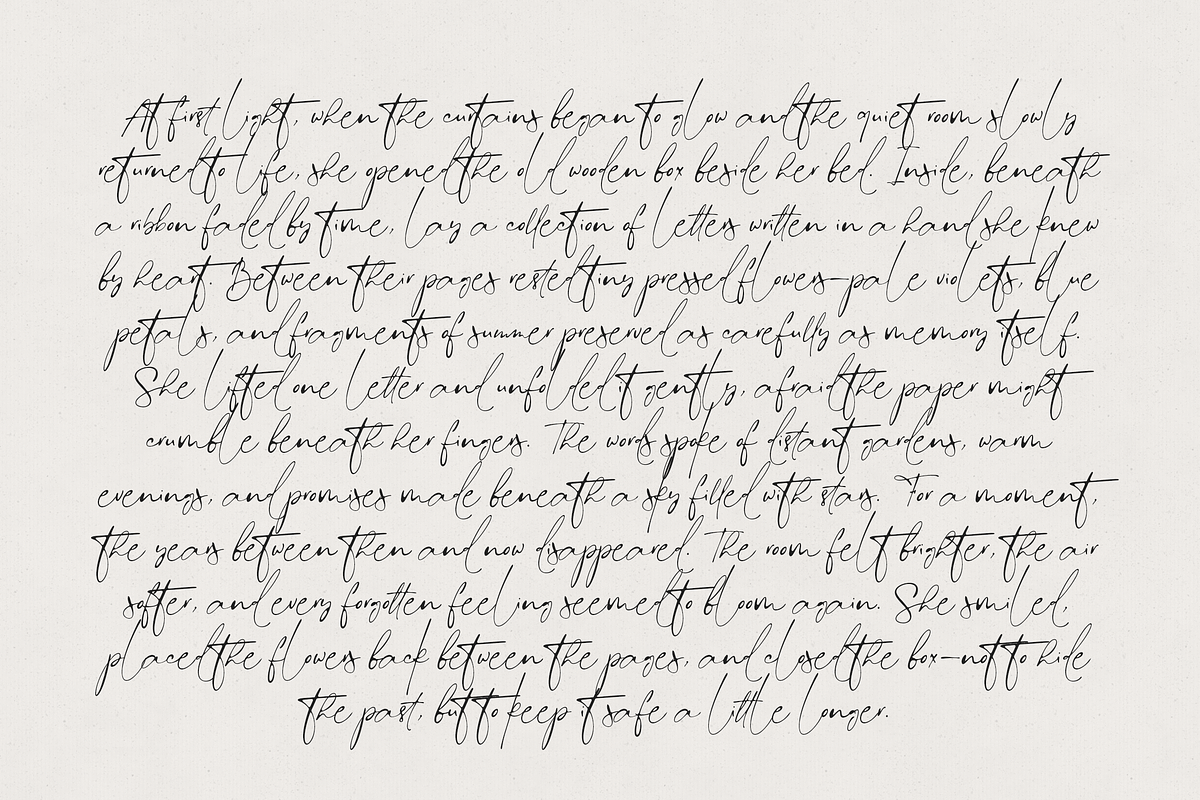 At first light, when the curtains began to glow and the quiet room slowly
returned to life, she opened the old wooden box beside her bed. Inside, beneath
a ribbon faded by time, lay a collection of letters written in a hand she knew
by heart. Between their pages rested tiny pressed flowers—pale violets, blue
petals, and fragments of summer preserved as carefully as memory itself.
She lifted one letter and unfolded it gently, afraid the paper might
crumble beneath her fingers. The words spoke of distant gardens, warm
evenings, and promises made beneath a sky filled with stars. For a moment,
the years between then and now disappeared. The room felt brighter, the air
softer, and every forgotten feeling seemed to bloom again. She smiled,
placed the flowers back between the pages, and closed the box—not to hide
the past, but to keep it safe a little longer.